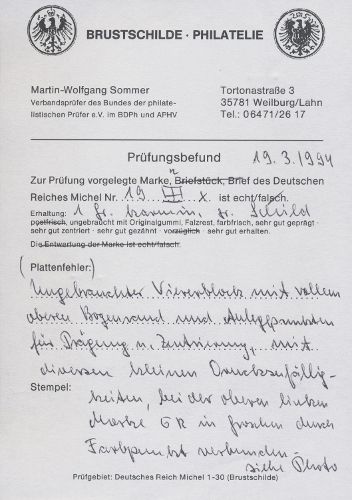 BRUSTSCHILDE · PHILATELIE
Martin-Wolfgang Sommer
Verbandsprüfer des Bundes der philate-
listischen Prüfer e.V. im BDPh und APHV
Tortonastraße 3
35781 Weilburg/Lahn
Tel.: 06471/26 17
Prüfungsbefund 19.3.1994
Zur Prüfung vorgelegte Marken, Briefstück, Brief des Deutschen
Reiches Michel Nr. 19 x. ist echt/falsch.
Erhaltung: 1 Gr. karmin, gr. Schild
postfrisch, ungebraucht mit Originalgummi, Falzrest, farbfrisch, sehr gut geprägt ·
sehr gut zentriert · sehr gut gezähnt · vorzüglich · sehr gut erhalten.
Die Entwertung der Marke ist echt/falsch.
(Plattenfehler:)
Ungebrauchter Viererblock mit vollem
oberen Bogenrand und Anlegepunkten
für Prägung u. Zentrierung, mit
diversen kleinen Druckzufällig-
Stempel: keiten, bei der oberen linken
Marke GR in Groschen durch
Farbpunkt verbunden. -
siehe Photo
Prüfgebiet: Deutsches Reich Michel 1-30 (Brustschilde)